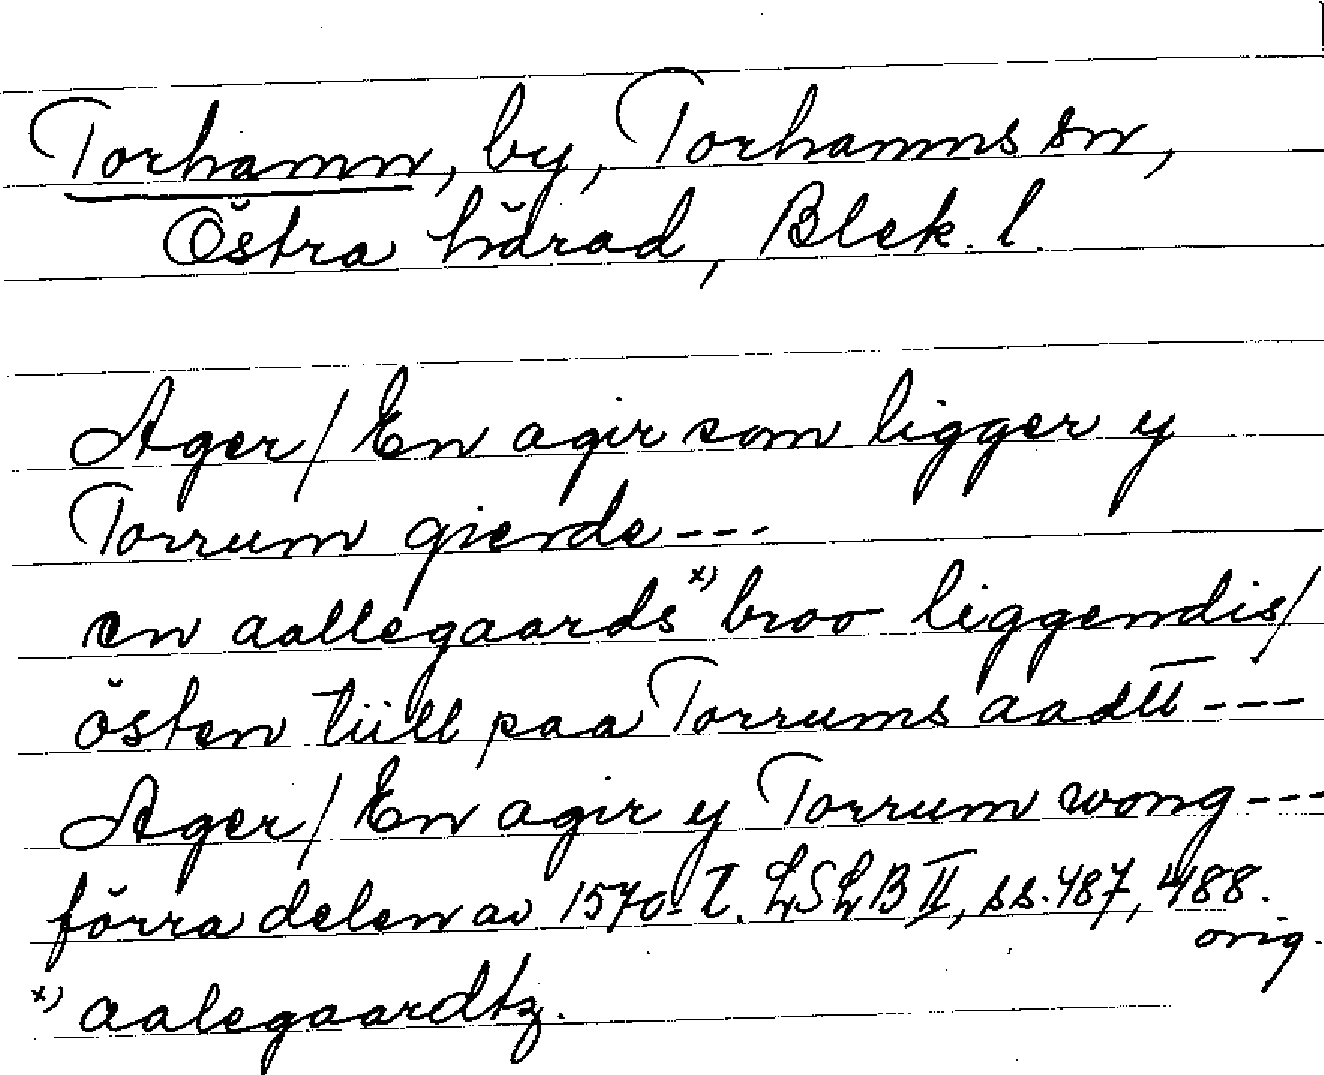 Torhamn, by, Torhamns sn,
Östra härad, Blek. l.
Ager/ En agir som ligger y
Torrum gierde---
en aallegaards x) broo liggendis/
östen tiill paa Torrums aadtt---
Ager/ En agir y Torrum wong---
förra delen av 1570-t. LSLB II, ss. 487, 488.
orig.
x) aalegaardtz.